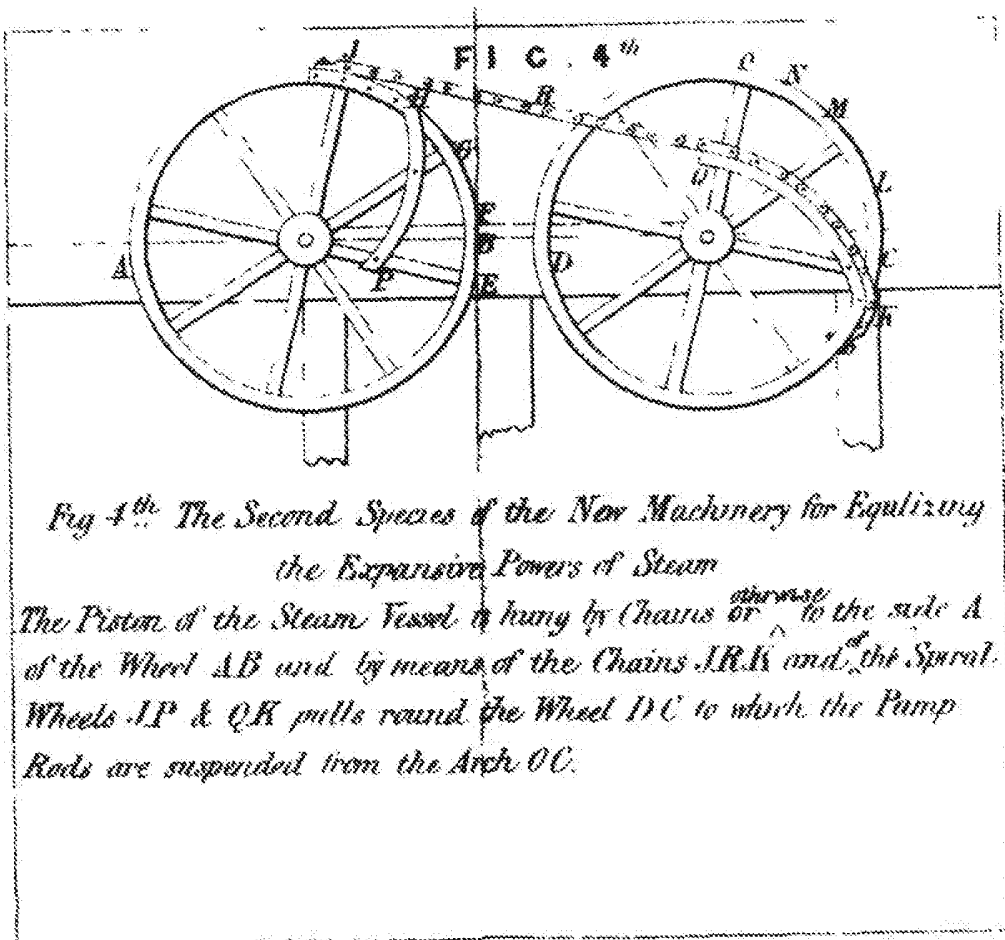 FIG. 4th
J
H
R
G
F
B
E
A
P
D
Q
O
N
M
L
C
K
Fig 4th The Second Species of the New Machinery for Equlizing
the Expansive Powers of Steam
The Piston of the Steam Vessel is hung by Chains or otherwise to the side A
of the Wheel AB and by means of the Chains J.R.K and of the Spiral
Wheels J.P & Q.K pulls round the Wheel DC to which the Pump
Rods are suspended from the Arch OC.